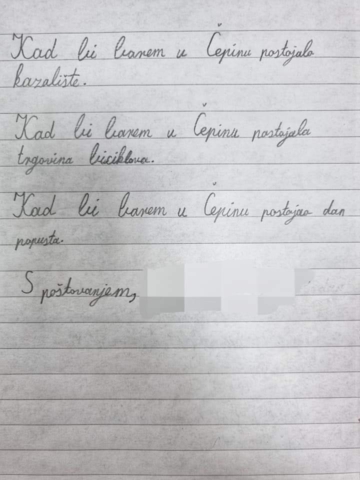 Kad bi barem u Čepinu postojalo
kazalište.
Kad bi barem u Čepinu postojala
trgovina biciklova.
Kad bi barem u Čepinu postojao dan
popusta.
S poštovanjem,